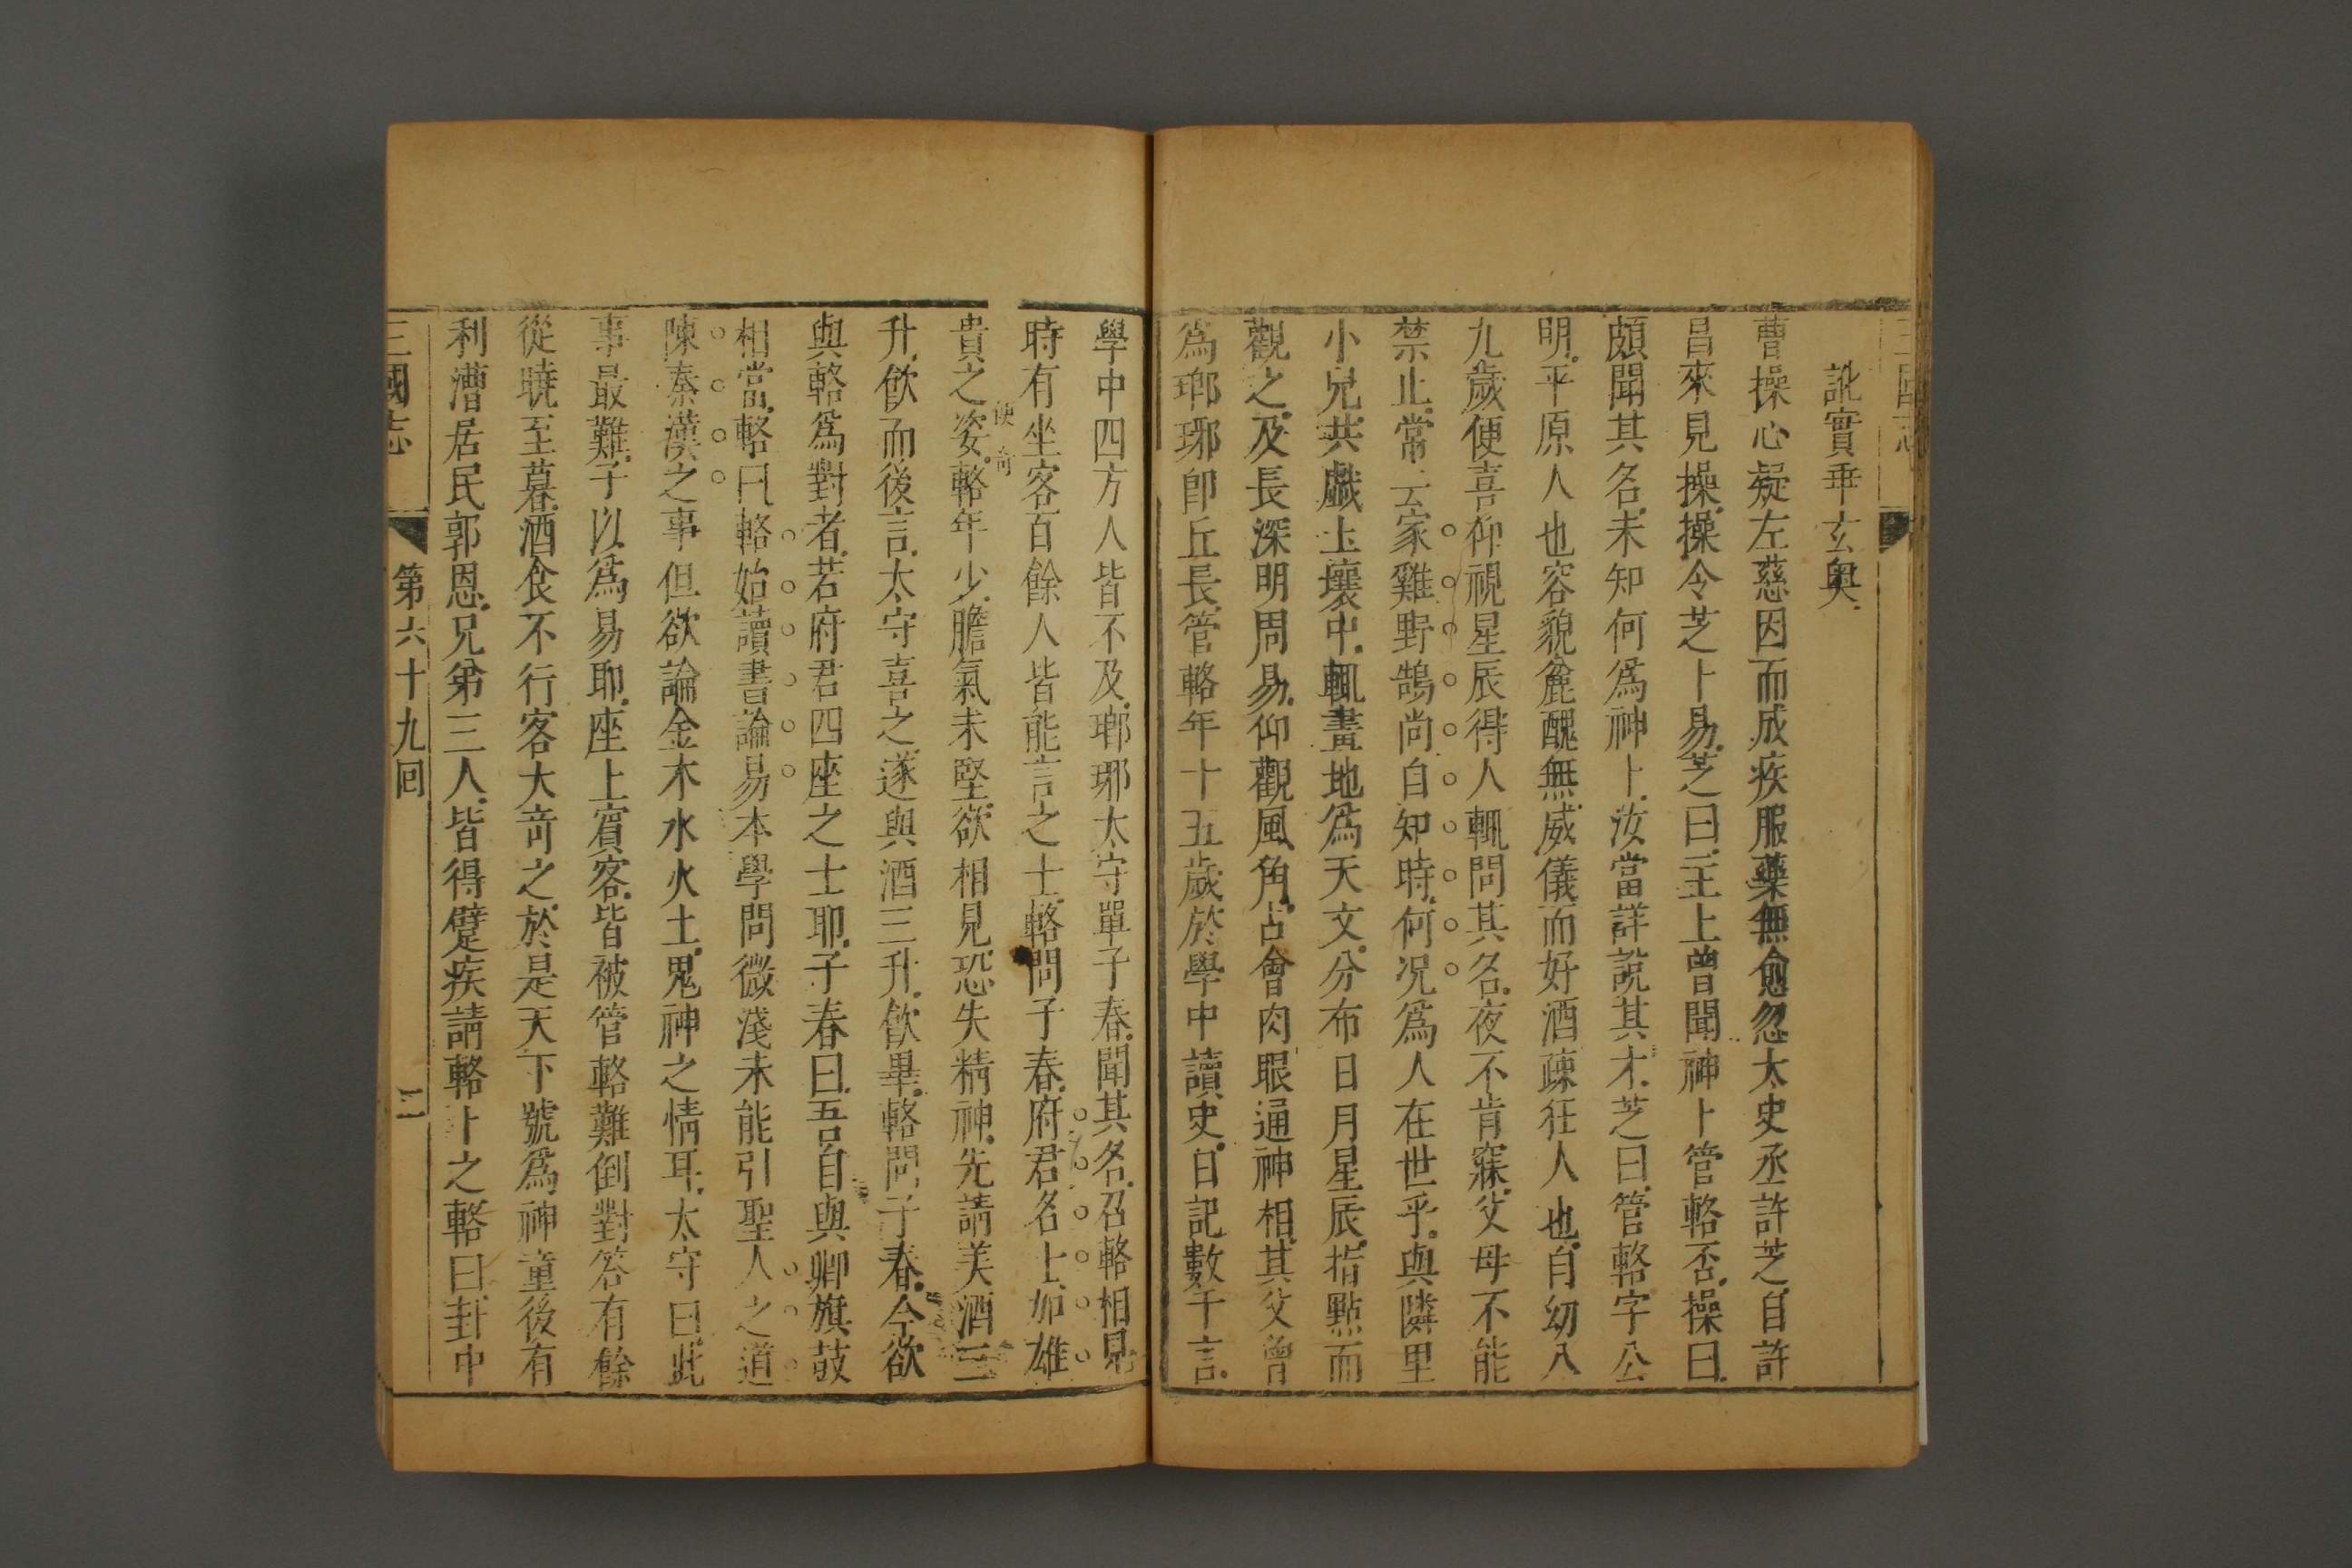 三國志
訛實乖玄奧
曹操心疑左慈因而成疾服藥無愈忽太史丞許芝自許
昌來見操操令芝卜易芝曰王上曾聞神卜管輅否操曰
頗聞其名未知何為神卜汝當詳說其才芝曰管輅字公
明平原人也容貌麄醜無威儀而好酒疎狂人也自幼八
九歲便喜仰視星辰得人輒問其名夜不肯寐父母不能
禁止常云家雞野鵠尚自知時何况為人在世乎與隣里
小兒共戲土壤中輒畫地為天文分布日月星辰指點而
觀之及長深明周易仰觀風角占會肉眼通神相其父曾
為瑯琊卽丘長管輅年十五歲於學中讀史日記數千言
學中四方人皆不及瑯琊太守單子春聞其名召輅相見
時有坐客百餘人皆能言之士輅問子春府君名士加雄
便奇
貴之姿輅年少膽氣未堅欲相見恐失精神先請美酒三
升飲而後言太守喜之遂與酒三升飲畢輅問子春今欲
與輅為對者若府君四座之士耶子春曰吾自與卿旗鼓
相當輅曰輅始讀書論易本學問微淺未能引聖人之道
陳秦漢之事但欲論金木水火土鬼神之情耳太守曰此
事最難子以為易耶座上賓客皆被管輅難倒對答有餘
從曉至暮酒食不行客大奇之於是天下號為神童後有
利漕居民郭恩兄弟三人皆得躄疾請輅卜之輅曰卦中
三國志 第六十九回 二